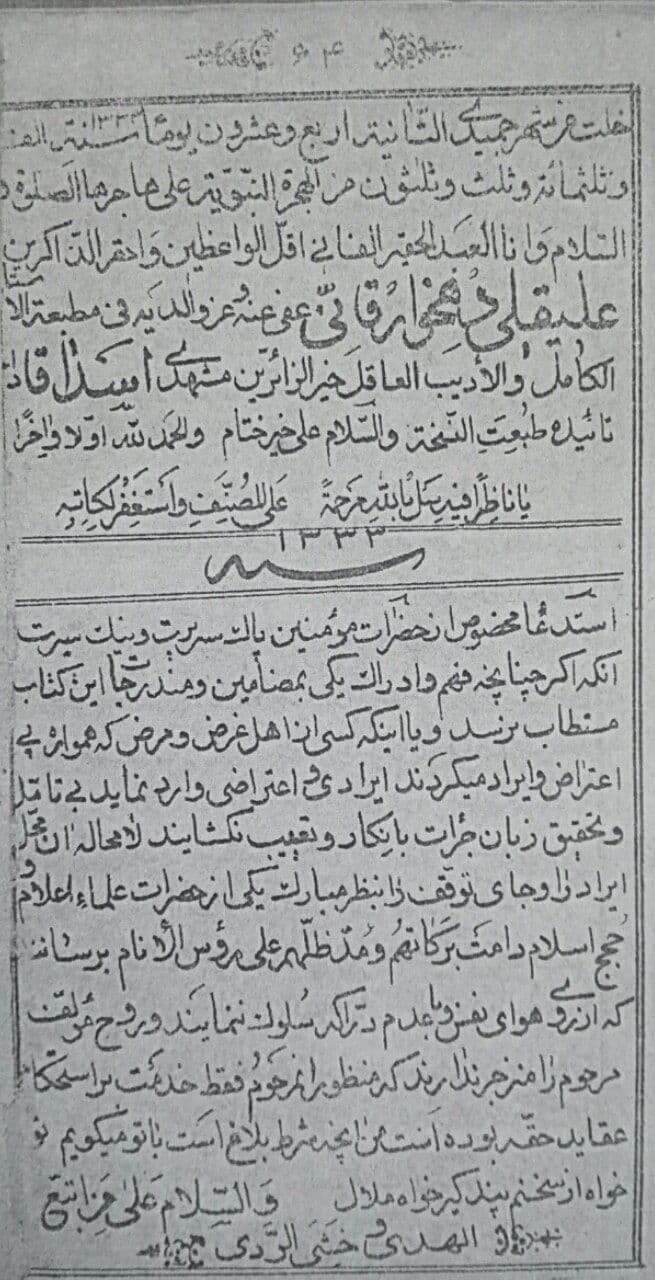 ۶۴
خلت من شهر جمیدی الثانیة اربع و عشرون یوما ۱۳۳۳ سنة الف
و ثلثمائة و ثلث و ثلثون من الهجرة النبویة علی هاجرها الصلوة و
السلام و انا العبد الحقیر الفانی اقل الواعظین و احقر الذاکرین
علیقلی دهخوارقانی عفی عنه و عن والدیه فی مطبعة الاستاد
الکامل و الأدیب العاقل خیر الزائرین مشهدی اسد آقا دام
تائیده طبعت النسخة والسلام علی خیر ختام والحمد لله اولا و اخرا
یا ناظرا فیه سل بالله مرحمة علی المصنف واستغفر لکاتبه
سنه ۱۳۳۳
استدعا مخصوص از حضرات مؤمنین پاك سریرت و نیك سیرت
انکه اکر چنانچه فهم و ادراك یکی بمضامین و مندرجات این کتاب
مستطاب نرسد و یا اینکه کسی از اهل غرض و مرض که همواره پی
اعتراض و ایراد میکردند ایرادی و اعتراضی وارد نماید بی تامل
و تحقیق زبان جرات بانکار و تعییب نکشایند لا محاله ان محل
ایراد را و جای توقف را بنظر مبارك یکی از حضرات علماء اعلام و
حجج اسلام دامت برکاتهم و مد ظلهم علی رؤس الأنام برسانند
که از روی هوای نفس و یا عدم درا که سلوك ننمایند و روح مؤلف
مرحوم را منزجر ندارند که منظور انمرحوم فقط خدمت بر استحکام
عقاید حقه بوده است من انچه شرط بلاغ است با تو میکویم تو
خواه از سخنم پند کیر خواه ملال والسلام علی من اتبع
الهدی و خشی الردی